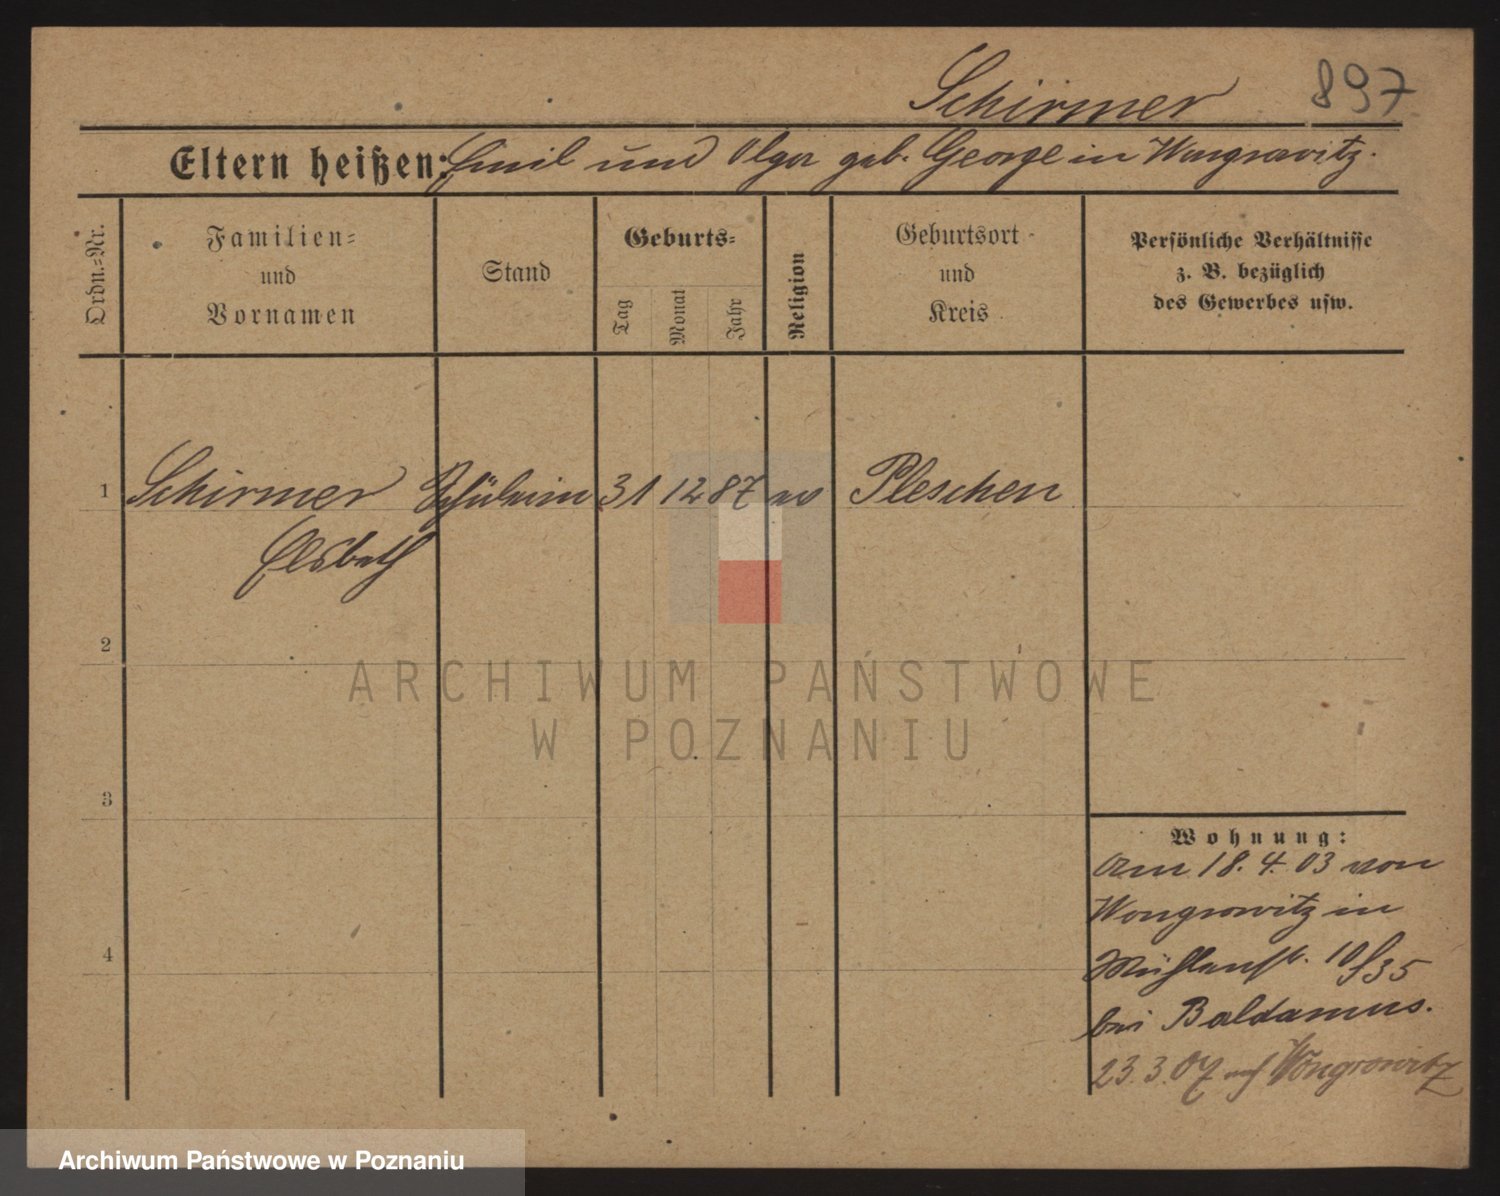 Schirmer 897
Eltern heißen: Emil und Olga geb. George in Wongrowitz.
Ordn.=Nr.
Familien=
und
Vornamen
Stand
Geburts=
Tag
Monat
Jahr
Religion
Geburtsort
und
Kreis
Persönliche Verhältnisse
z. B. bezüglich
des Gewerbes usw.
1 Schirmer Schülerin 31 12 87 ev Pleschen
Elsbeth
2
3
4
Wohnung:
Am 18. 4. 03 von
Wongrowitz in
Mühlenstr. 10/35
bei Baldamus.
23. 3. 07 nach Wongrowitz
ARCHIWUM PAŃSTWOWE
W POZNANIU
Archiwum Państwowe w Poznaniu